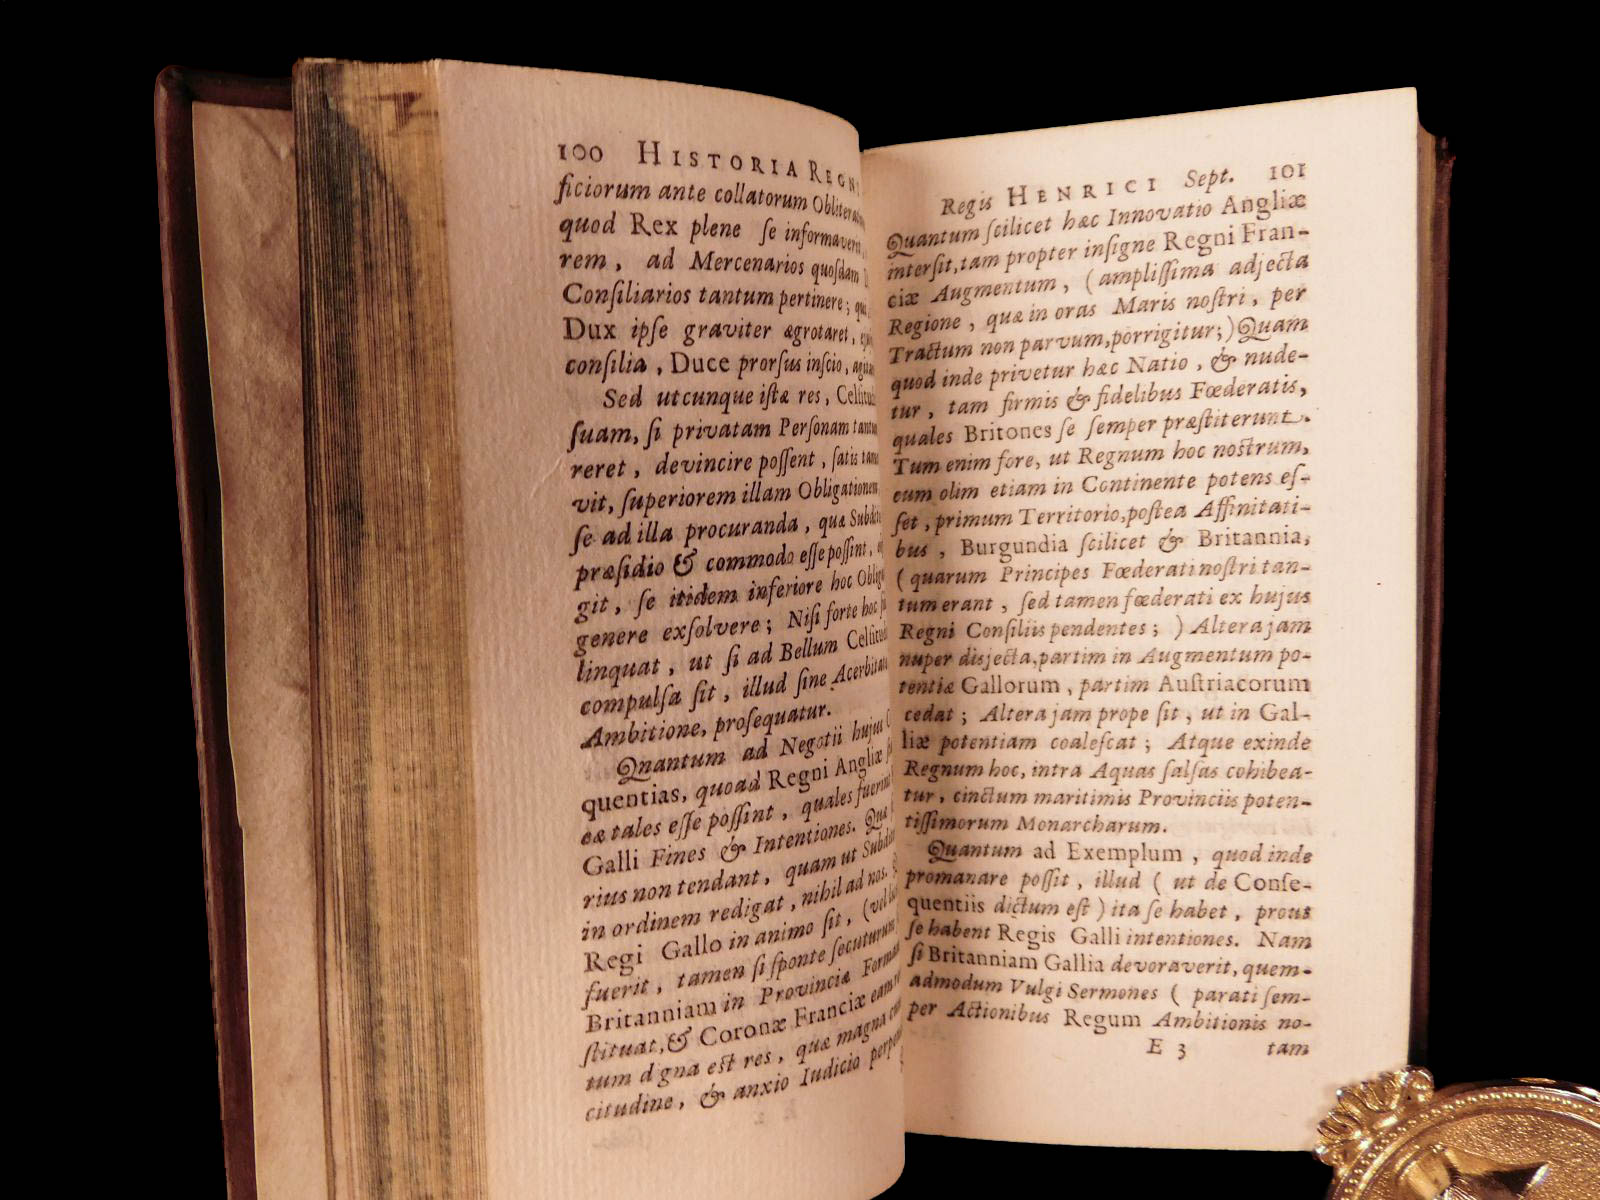 100 HISTORIA REGNI
ficiorum ante collatorum
quod Rex plene ſe
rem, ad Mercenarios quoſdam
Conſiliarios tantum pertinere;
Dux ipſe graviter ægrotaret,
conſilia, Duce prorſus inſcio,
Sed utcunque iſtæ res,
ſuam, ſi privatam Perſonam
reret, devincire poſſent, ſatis
vit, ſuperiorem illam Obligationem
ſe ad illa procuranda, quæ
præſidio & commodo eſſe poſſint,
git, ſe itidem inferiore hoc
genere exſolvere; Niſi forte hoc
linquat, ut ſi ad Bellum
compulſa ſit, illud ſine
Ambitione, proſequatur.
Quantum ad Negotii hujus
quentias, quoad Regni Angliæ
eæ tales eſſe poſſint, quales
Galli Fines & Intentiones.
rius non tendant, quam ut
in ordinem redigat, nihil ad nos.
Regi Gallo in animo ſit, (vel
fuerit, tamen ſi ſponte ſecuturum
Britanniam in Provinciæ
ſtituat, & Coronæ Franciæ
tum digna eſt res, quæ magna
citudine, & anxio Iudicio
Regis HENRICI Sept. 101
Quantum ſcilicet hæc Innovatio Angliæ
interſit, tam propter inſigne Regni Fran-
ciæ Augmentum, (ampliſſima adjecta
Regione, quæ in oras Maris noſtri, per
Tractum non parvum, porrigitur;) Quam
quod inde privetur hæc Natio, & nude-
tur, tam firmis & fidelibus Fœderatis,
quales Britones ſe ſemper præſtiterunt.
Tum enim fore, ut Regnum hoc noſtrum,
cum olim etiam in Continente potens eſ-
ſet, primum Territorio, poſtea Affinitati-
bus, Burgundia ſcilicet & Britannia,
(quarum Principes Fœderati noſtri tan-
tum erant, ſed tamen fœderati ex hujus
Regni Conſiliis pendentes;) Altera jam
nuper disjecta, partim in Augmentum po-
tentiæ Gallorum, partim Auſtriacorum
cedat; Altera jam prope ſit, ut in Gal-
liæ potentiam coaleſcat; Atque exinde
Regnum hoc, intra Aquas ſalſas cohibea-
tur, cinctum maritimis Provinciis poten-
tiſſimorum Monarcharum.
Quantum ad Exemplum, quod inde
promanare poſſit, illud (ut de Conſe-
quentiis dictum eſt) ita ſe habet, prout
ſe habent Regis Galli intentiones. Nam
ſi Britanniam Gallia devoraverit, quem-
admodum Vulgi Sermones (parati ſem-
per Actionibus Regum Ambitionis no-
E 3 tam